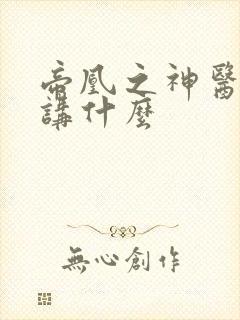 帝凰之神醫
講什麼
無心創作